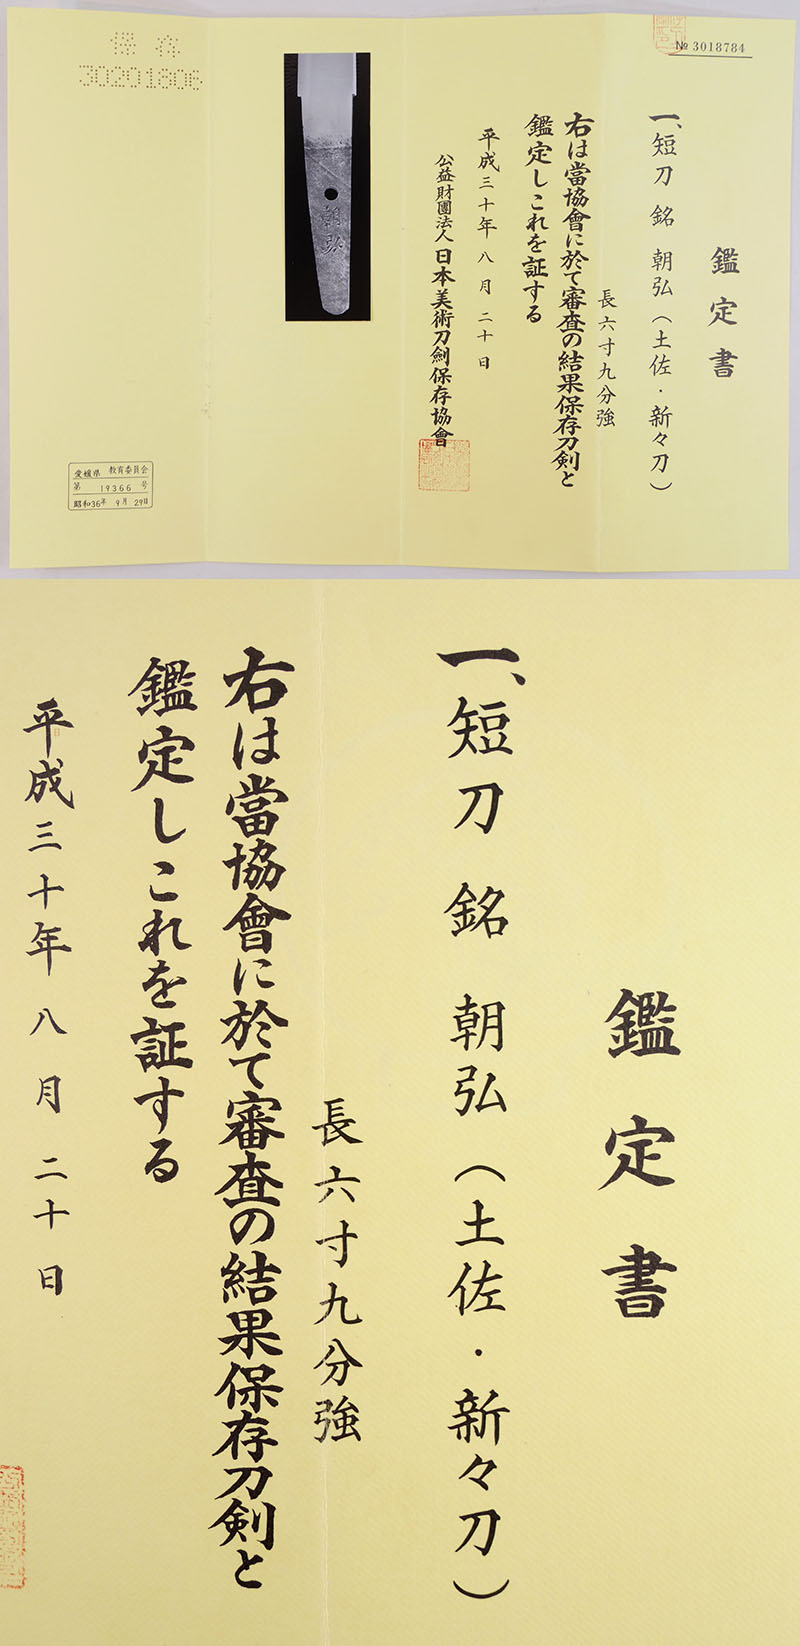 № 3018784
鑑定書
一、短刀 銘 朝弘(土佐・新々刀)
長六寸九分強
右は當協會に於て審査の結果保存刀剣と
鑑定しこれを証する
平成三十年八月二十日
公益財團法人日本美術刀劍保存協會
朝弘
保存
30201806
愛媛県 教育委員会
第 19366 号
昭和36年 9月 29日
鑑定書
一、短刀 銘 朝弘(土佐・新々刀)
長六寸九分強
右は當協會に於て審査の結果保存刀剣と
鑑定しこれを証する
平成三十年八月二十日